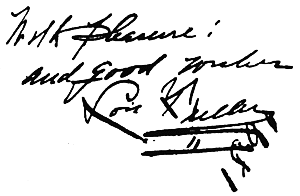 With pleasure!
and good wishes
Loie Fuller